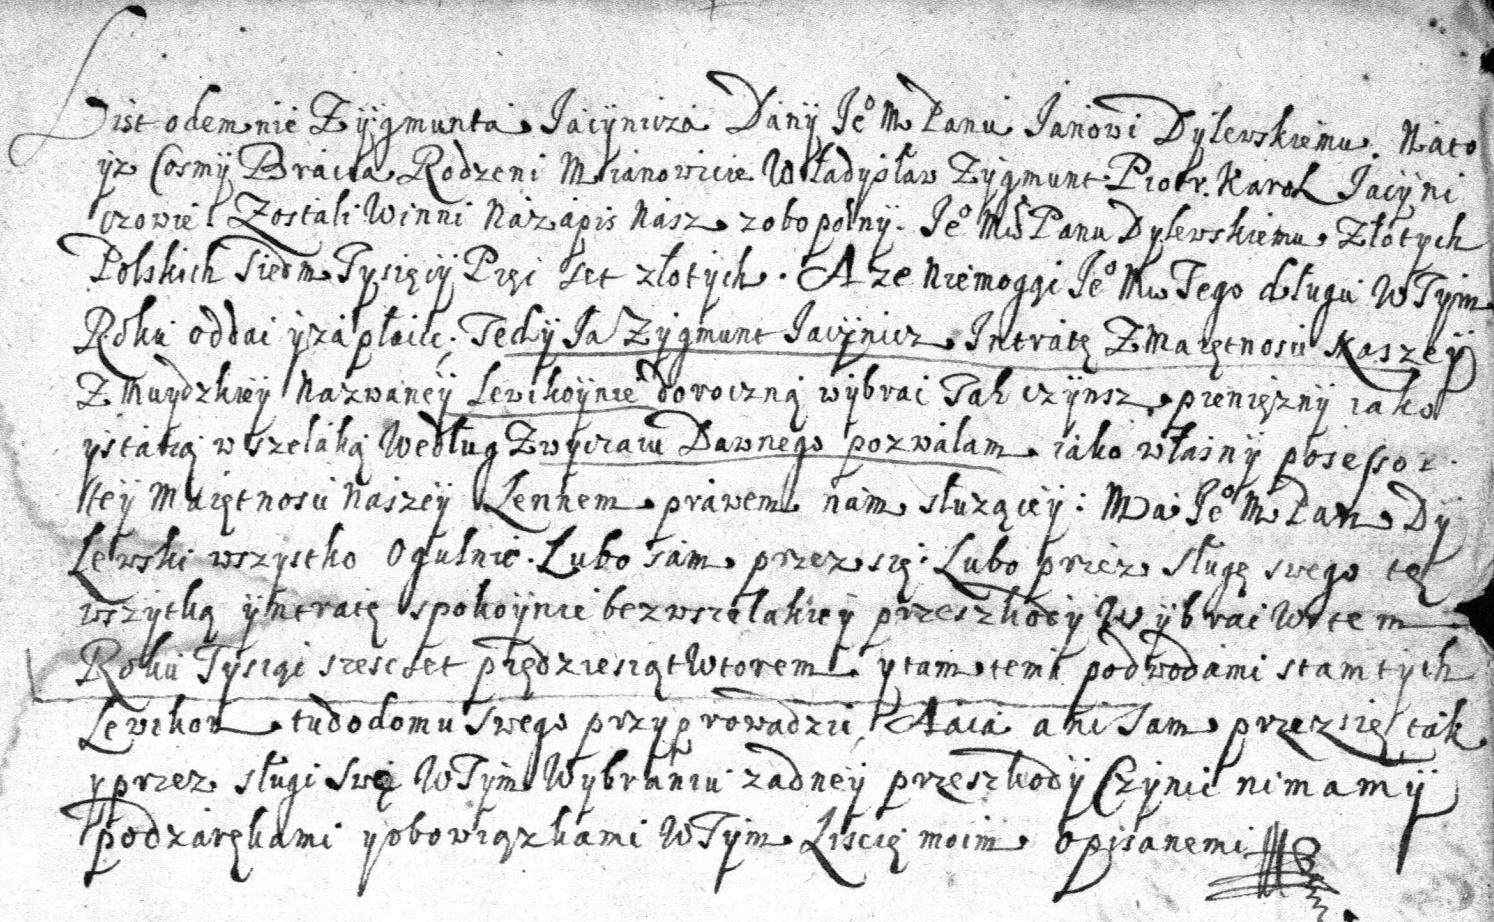 List odemnie Zÿgmunta Jacÿnicza Danÿ Jeo M Panu Janowi Dÿlewskiemu. Nato
ÿz Cosmÿ Bracia Rodzeni Mianowicie Władysław Zÿgmunt Piotr. Karol Jacÿni
czowie Zostali Winni Nazapis Nasz zobopolnÿ. Jeo Mś Panu Dylewskiemu Złotych
Polskich Siedm Tysięcÿ Pięć set złotych. A ze niemoggi Jeo Mw Tego długu W Tym
Roku oddai ÿ zápłacic; Tedÿ Ja Zÿgmunt Jacÿnicz Intratę Z Maiętnosci Naszeÿ
Z Muydzkieÿ Nazwaneÿ Lewikoÿnie doroczną wÿbrać Tak czÿnsz pieniężnÿ iako
ÿstacią wszelaką Według Zwyczaiu Dawnego pozwalam iako własnÿ posessor
tteÿ Maiętnosci Naszeÿ Lennem prawem nam służącieÿ: Ma Jeo M Pan Dÿ
Lewski wszystko Ogulnie. Lubo sam przez się. Lubo przez sługę swego tę
wszytką ÿntratę spokoÿnie bez wszelakieÿ przeszkodÿ Wÿbrać W tem
Roku Tysiąc szescset piędziesiąt Wtorem. y tam temi podwodami s tamtÿch
Lewikow tudodomu swego przyprowadzić, A ia ani sam przez się tak
y przez sługi Swę W Tÿm Wybraniu zadneÿ przeszkodÿ Czÿnic nimamÿ
pod zaręhami y obowiązkami W Tÿm Liscię moim opisanemi